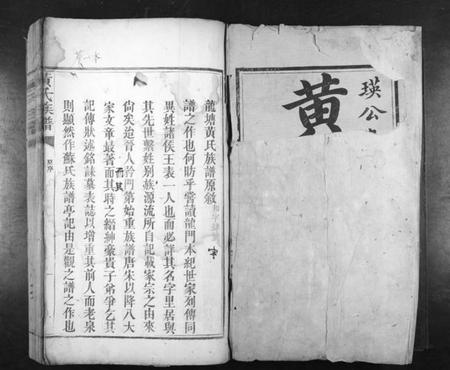 瑛公
黃
龍塘黃氏族譜原敘
譜之作也何昉乎嘗讀龍門本紀世家列傳同
異姓諸侯王表一人也而必詳其名字里居與
其先世繫姓別族源流所自記載家宗之由來
尙矣迨晉人矜門第始重族譜唐朱以降八大
家文章最著而其時之縉紳豪貴子弟爭乞其
記傳狀述銘誄墓表誌以增重其前人而老泉
則顯然作蘇氏族譜亭記由是觀之譜之作也
黃氏族譜
原序